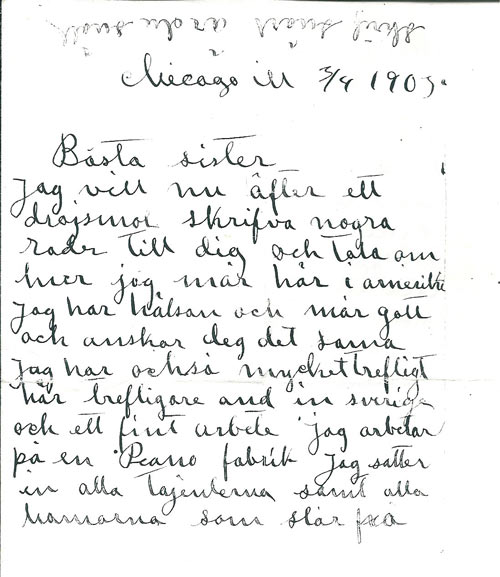 skrif snart är du snäll
Chicago ill 3/4 1905.
Bästa sister
Jag vill nu äfter ett
dröjsmol skrifva nogra
rader till dig och tala om
hur jag mår här i amerika
Jag har hälsan och mår gott
och anskar deg det sama
Jag har också mycket trefligt
här trefligare and in sverige
och ett fint arbete jag arbetar
på en Peano fabrik Jag satter
in alla tajenterna samt alla
hamarna som slår på